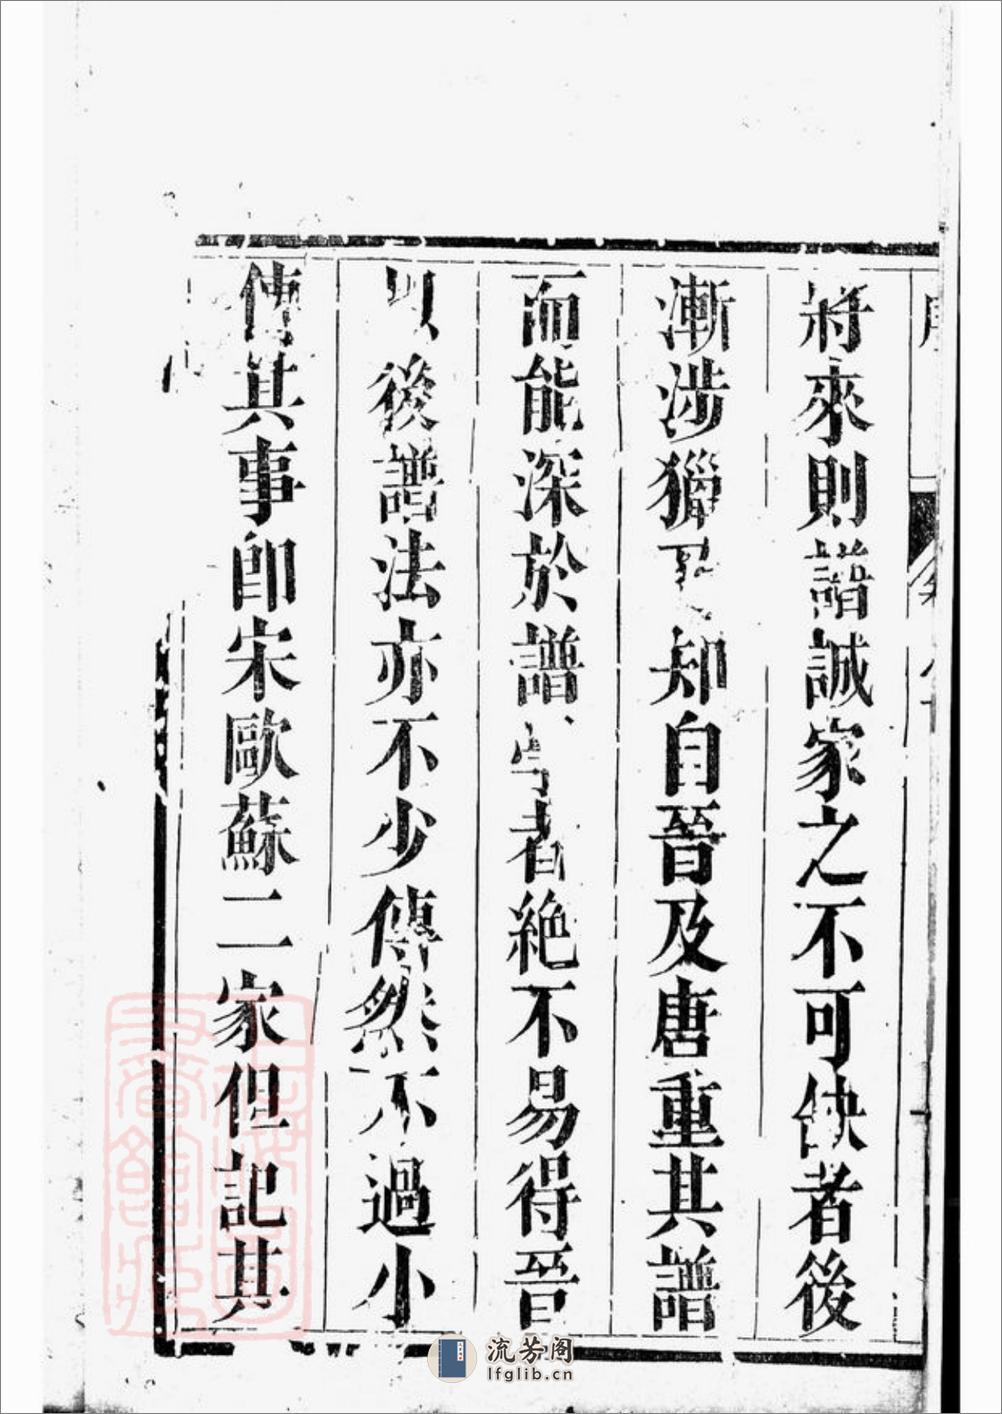 將來則譜誠家之不可缺者後
漸涉獵 知自晉及唐重其譜
而能深於譜學者絶不易得晉
以後譜法亦不少傳然不過小
傳其事卽宋歐蘇二家但記其
流芳阁
lfglib.cn